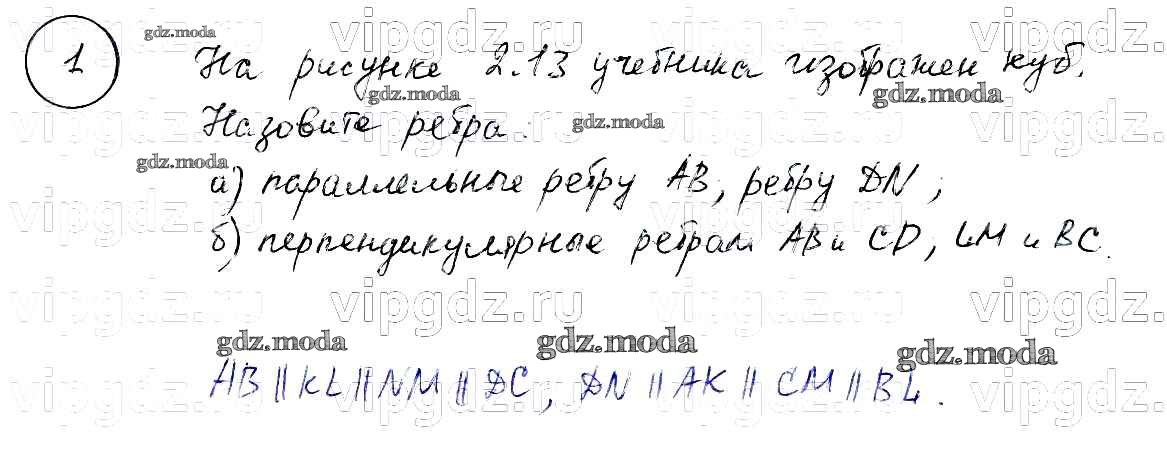 vipgdz.ru vipgdz.ru vipgdz.ru vipgdz.ru
gdz.moda
1 На рисунке 2.13 учебника изображен куб.
gdz.moda gdz.moda
Назовите ребра:
gdz.moda
vipgdz.ru vipgdz.ru vipgdz.ru vipgdz.ru
gdz.moda
а) параллельные ребру AB, ребру DN;
vipgdz.ru vipgdz.ru vipgdz.ru vipgdz.ru
б) перпендикулярные ребрам AB и CD, LM и BC.
vipgdz.ru vipgdz.ru vipgdz.ru vipgdz.ru
gdz.moda gdz.moda gdz.moda
AB || KL || NM || DC, DN || AK || CM || BL.
vipgdz.ru vipgdz.ru vipgdz.ru vipgdz.ru